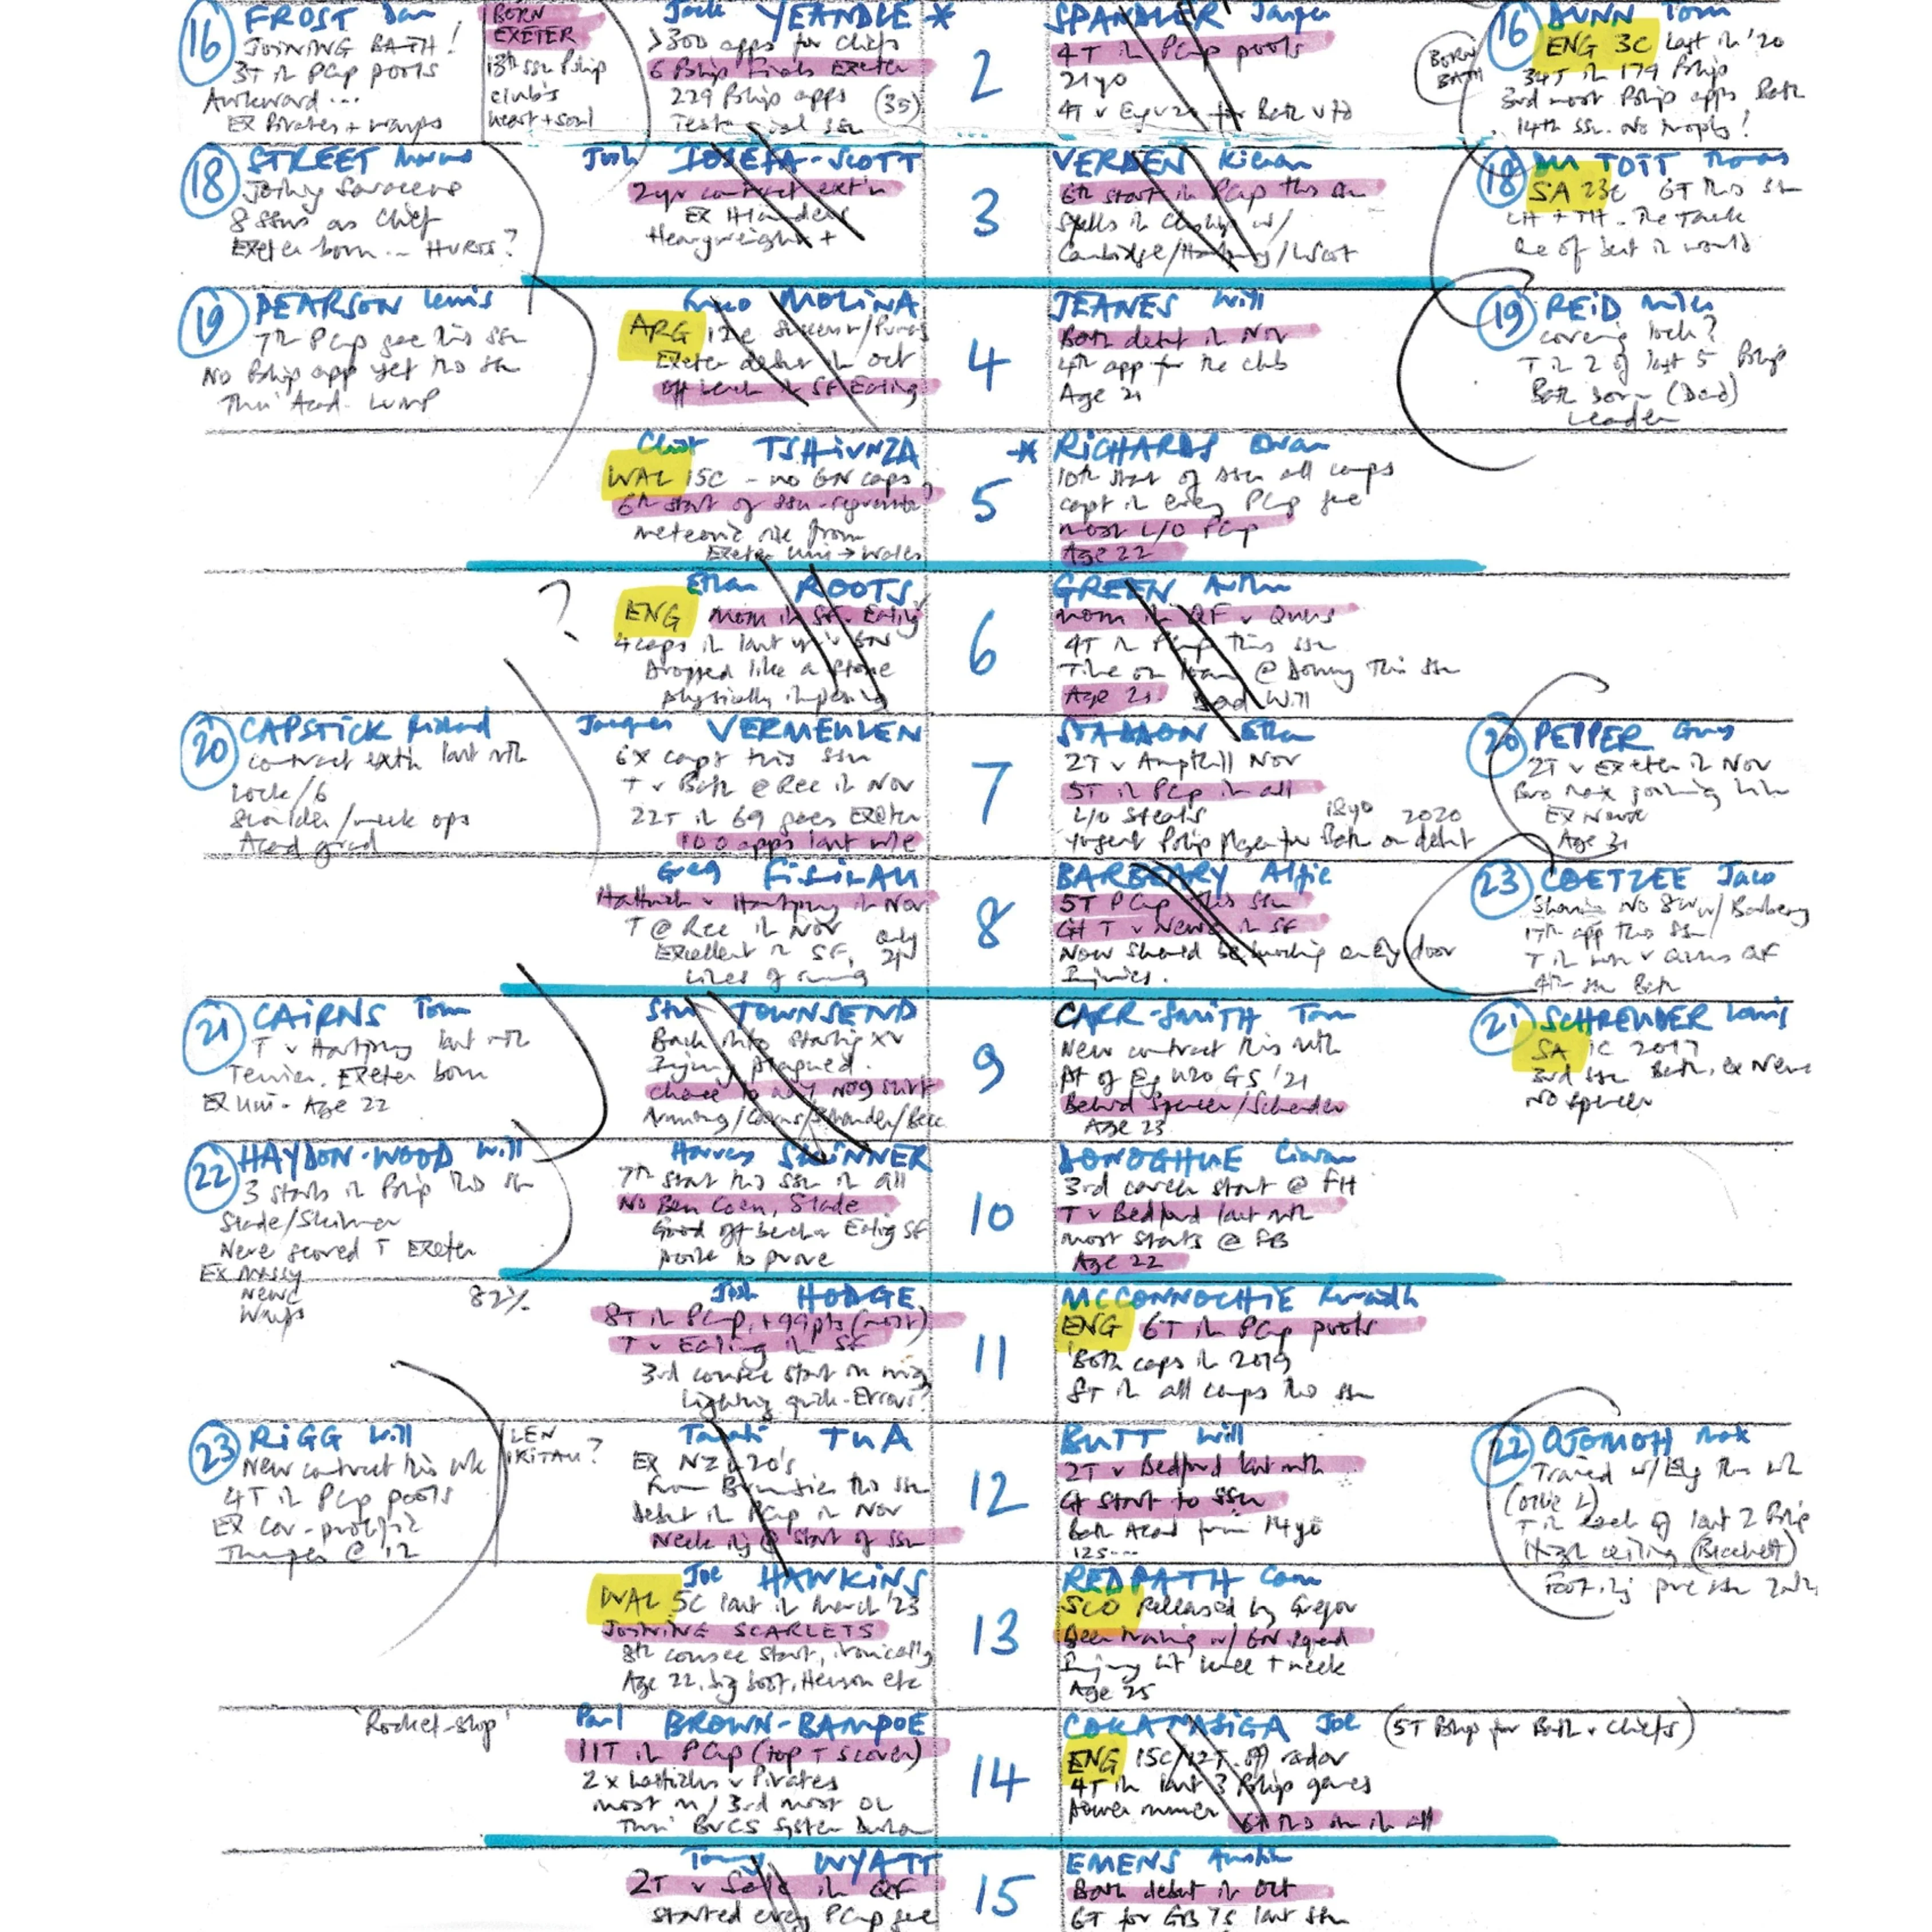 16 FROST Dan
JOINING BATH!
3T in PCup pools
Awkward...
Ex Pirates + Wasps
BORN
EXETER
13th ssn Pship
club's
heart + soul
Jack YEANDLE *
>300 apps for Chiefs
6 Pship finals Exeter
229 Pship apps (35)
Testimonial ssn
2
SPANDLER Jasper
4T in PCup pools
21yo
4T v Eng u20 for Bath v td
BORN
BATH
16 DUNN Tom
ENG 3C last in '20
34T in 179 Pship
3rd most Pship apps Bath
14th ssn. No trophy!
18 STREET Marcus
Joining Saracens
8 ssns as Chief
Exeter born... HURTS?
Josh IOSEFA-SCOTT
2yr contract ext'n
Ex Highlanders
Heavyweight +
3
VERDEN Kieran
6th start in PCup this ssn
Spells in Ch'ship w/
Cambridge/Hartpury/
18 DU TOIT Thomas
SA 23c 6T this ssn
LH + TH. The Tank
One of best in world
19 PEARSON Lewis
7th PCup game this ssn
No Pship app yet this ssn
Thru' Acad. LUMP
MOLINA
ARG
Exeter debut in Oct
Off bench in SF Ealing
4
JEANES Will
Bath debut in Nov
4th app for the club
Age 21
19 REID Miles
covering lock?
T in 2 of last 5 Pship
Bath born (Dad)
Leader
Christ TSHIUNZA
WAL 15C - no 6N caps
6th start of ssn
meteoric rise from
Exeter Uni → Wales
5
* RICHARDS Ewan
10th start of ssn all comps
capt in every PCup game
most L/O PCup
Age 22
?
Ethan ROOTS
ENG MOM in SF v Ealing
4 caps in last yr's 6N
Dropped like a stone
physically imposing
6
GREEN Arthur
MOM in QF v Quins
4T in PCup this ssn
Time on loan @ Donny this ssn
Age 21 Dad Will
20 CAPSTICK Richard
contract ext'n last mth
Lock/6
Shoulder/neck ops
Acad grad
Jacques VERMEULEN
6x capt this ssn
T v Bath @ Rec in Nov
22T in 69 games Exeter
100 apps last w/e
7
STADDON Ethan
2T v Ampthill Nov
5T in PCup in all
L/O steals 18yo 2020
Yngest Pship player for Bath on debut
20 PEPPER Guy
2T v Exeter in Nov
Bro Max joining him
Ex Newc
Age 21
Greg FISILAU
Hattrick v Hartpury in Nov
T @ Rec in Nov
Excellent in SF, only 21
Lines of running
8
BARBEARY Alfie
5T PCup this ssn
Gt T v Newc in SF
Now should be knocking on Eng door
Injuries.
23 COETZEE Jaco
Sharing No 8 w/ Barbeary
17th app this ssn
T in win v Quins QF
4th ssn Bath
21 CAIRNS Tom
T v Hartpury last mth
Terrier. Exeter born
Ex Uni - Age 22
Stu TOWNSEND
Back into starting XV
Injury plagued.
chance to nail No9 shirt
9
CARR-SMITH Tom
New contract this mth
Pt of Eng u20 GS '21
Behind Spencer/Schreuder
Age 23
21 SCHREUDER Louis
SA 1C 2017
3rd ssn Bath, ex Newc
No Spencer
22 HAYDON-WOOD Will
3 starts in Pship this ssn
Slade/Skinner
Never scored T Exeter
Ex Massy
Newc
Wasps
Harvey SKINNER
7th start this ssn in all
No Ben Coen, Slade
Good off bench v Ealing SF
point to prove
10
DONOGHUE Ciaran
3rd career start @ FH
T v Bedford last mth
most starts @ FB
Age 22
82%
Josh HODGE
8T in PCup, + 99pts (most)
T v Ealing in SF
3rd consec start on wing
Lightning quick - Errors?
11
MCCONNOCHIE Ruaridh
ENG 6T in PCup pools
Both caps in 2019
8T in all comps this ssn
23 RIGG Will
New contract this wk
4T in PCup pools
Ex Cov - prolific
Thumper @ 12
LEN
IKITAU?
Tamati TUA
Ex NZ u20's
From Brumbies this ssn
debut in PCup in Nov
Neck inj @ start of ssn
12
BUTT Will
2T v Bedford last mth
Gt start to ssn
Bath Acad from 14yo
125...
22 OJOMOH Max
Trained w/ Eng this wk
(Ollie L)
T in each of last 2 Pship
High ceiling (Beckett)
Foot inj pre ssn
Joe HAWKINS
WAL 5C last in March '23
JOINING SCARLETS
8th consec start, ironically
Age 22, big boot, Henson etc
13
REDPATH Cam
SCO Released by Gregor
Been training w/ 6N squad
Injury hit knee + neck
Age 25
'Rocket-ship'
Paul BROWN-BAMPOE
11T in PCup (top T scorer)
2 x hattricks v Pirates
most m/3rd most DL
Thru' BUCS system Durham
14
COKANASIGA Joe (5T Pship for Bath v Chiefs)
ENG 15C/12T. Off radar
4T in last 3 Pship games
Power runner 6T this ssn in all
Tommy WYATT
2T v Sale in QF
started every PCup game
15
EMENS Austin
Bath debut in Oct
6T for GB 7s last ssn